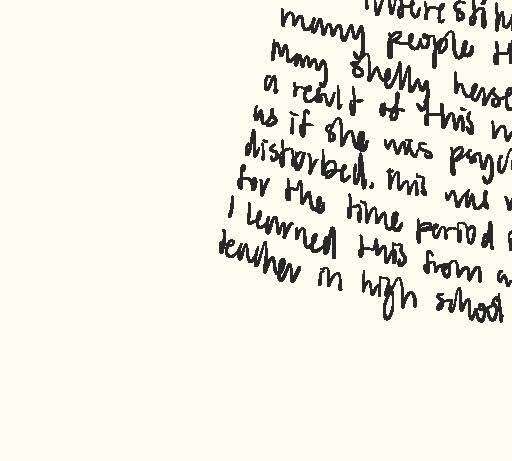 many people
Mary Shelly
a result of this
as if she was
disturbed. This was
for the time period
I learned this from
teacher in high school